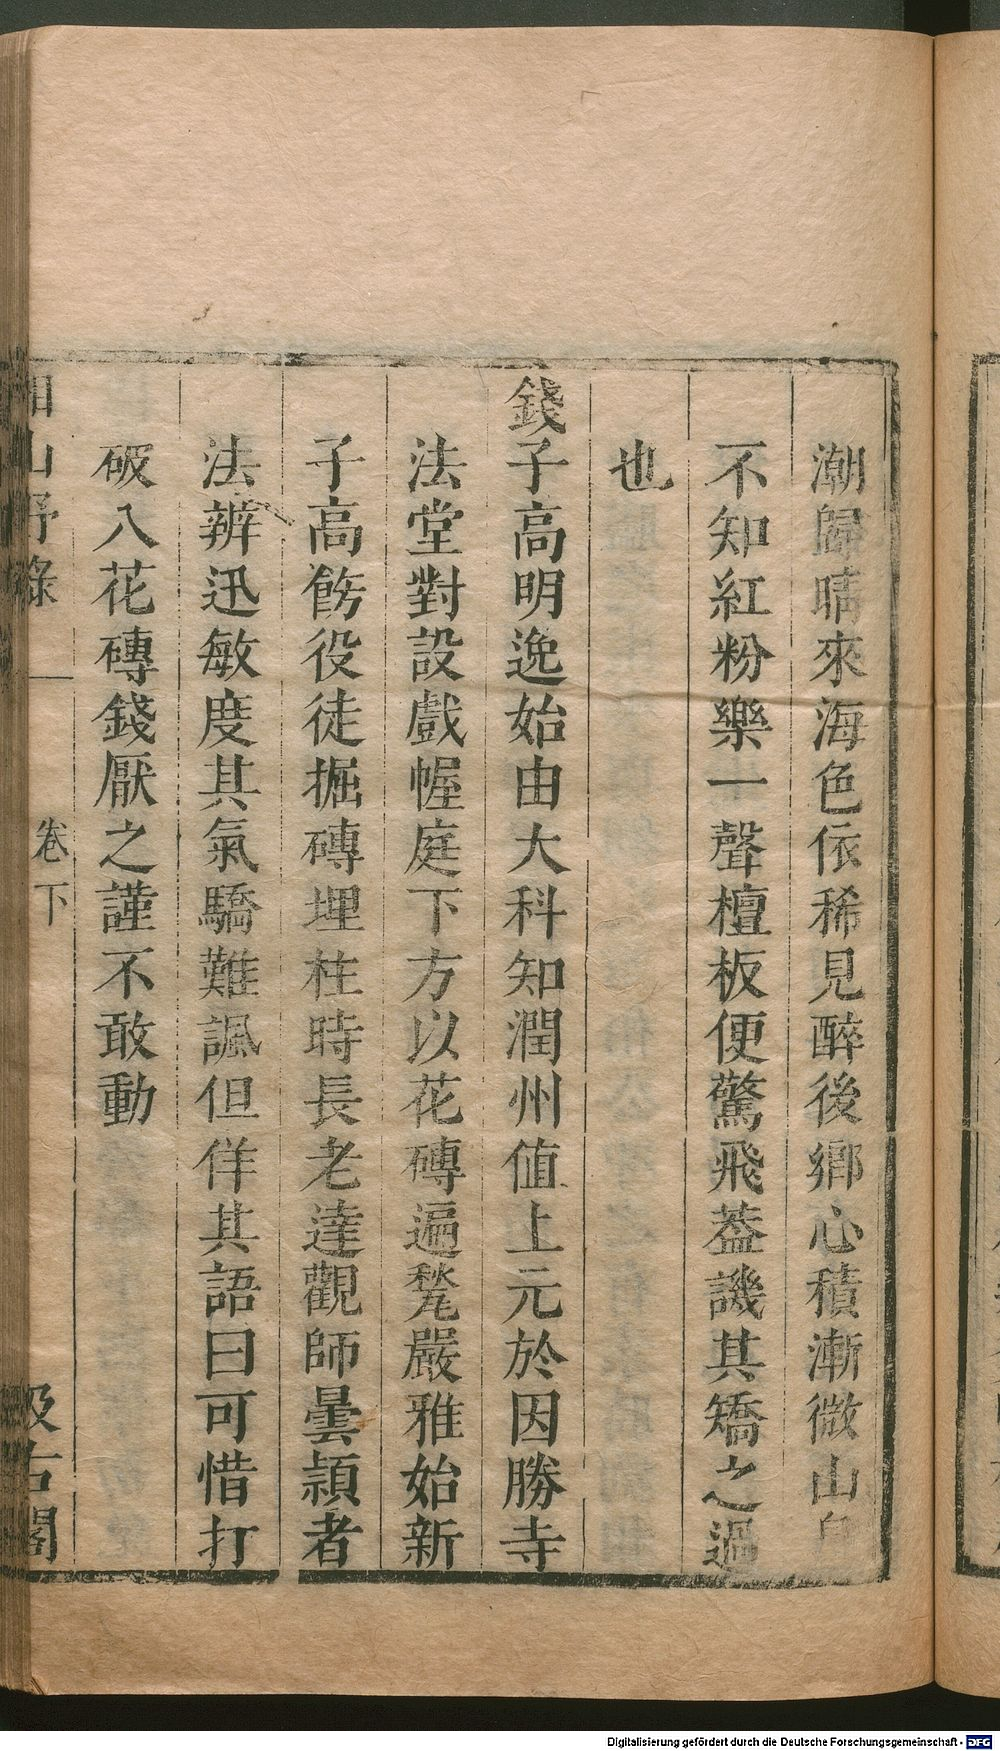 潮歸晴來海色依稀見醉後鄉心積漸微山鳥
不知紅粉樂一聲檀板便驚飛葢譏其矯之過
也
錢子高明逸始由大科知潤州値上元於因勝寺
法堂對設戲幄庭下方以花磚遍甃嚴雅始新
子高飭役徒掘磚埋柱時長老達觀師曇頴者
法辨迅敏度其氣驕難諷但佯其語曰可惜打
破八花磚錢厭之謹不敢動
湘山野錄
卷下
汲古閣
Digitalisierung gefördert durch die Deutsche Forschungsgemeinschaft - DFG